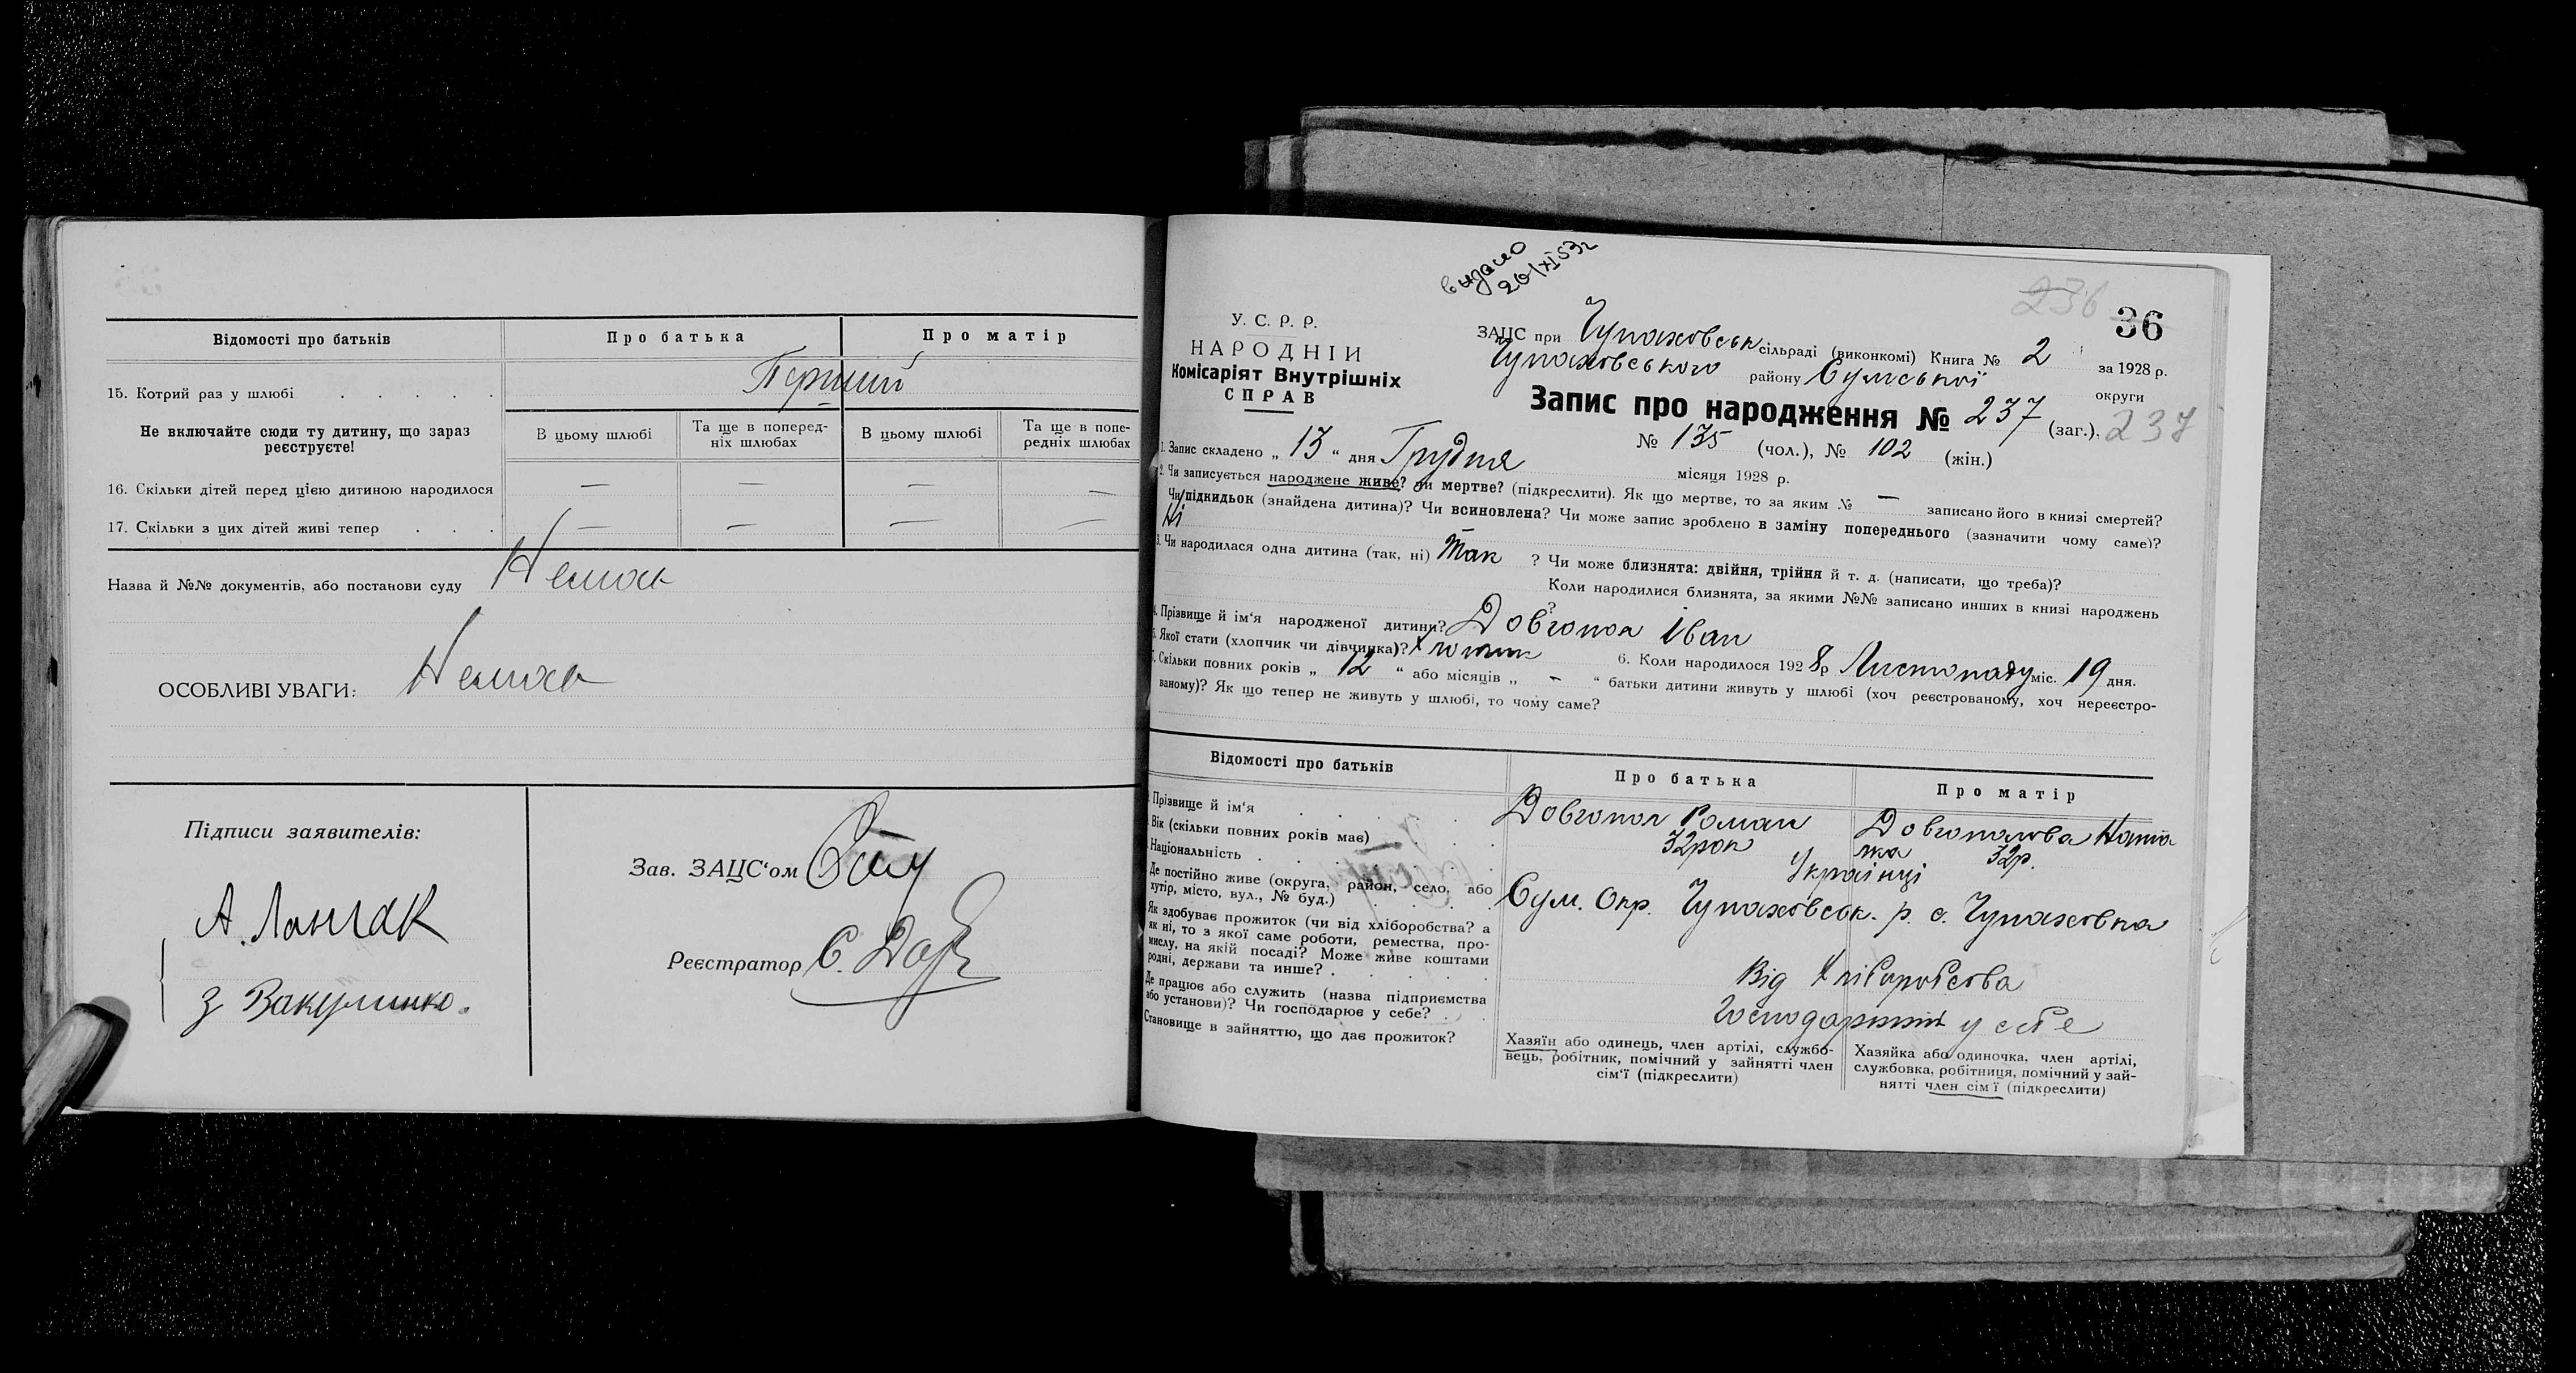 Відомості про батьків
Про батька
Про матір
15. Котрий раз у шлюбі
Перший
Не включайте сюди ту дитину, що зараз реєструєте!
В цьому шлюбі
Та ще в попередніх шлюбах
В цьому шлюбі
Та ще в попередніх шлюбах
16. Скільки дітей перед цією дитиною народилося — — — —
17. Скільки з цих дітей живі тепер — — — —
Назва й №№ документів, або постанови суду Немає
ОСОБЛИВІ УВАГИ: Немає
Підписи заявителів:
З Вакуленко.
Зав. ЗАЦС'ом
Реєстратор С.
видано
20/XI 53г
236
36
У. С. Р. Р.
НАРОДНІЙ
Комісаріят Внутрішніх
СПРАВ
ЗАЦС при Чупаховськ сільраді (виконкомі) Книга № 2 за 1928 р.
Чупаховського району Сумської округи
Запис про народження № 237 (заг.), 237
№ 135 (чол.), № 102 (жін.)
1. Запис складено „ 13 “ дня Грудня місяця 1928 р.
2. Чи записується народжене живе? чи мертве? (підкреслити). Як що мертве, то за яким № — записано його в книзі смертей?
Чи підкидьок (знайдена дитина)? Чи всиновлена? Чи може запис зроблено в заміну попереднього (зазначити чому саме)?
Ні —
3. Чи народилася одна дитина (так, ні) Так ? Чи може близнята: двійня, трійня й т. д. (написати, що треба)?
Коли народилися близнята, за якими №№ записано инших в книзі народжень ?
4. Прізвище й ім'я народженої дитини? Довгопол Іван
5. Якої стати (хлопчик чи дівчинка)? Хлопчик 6. Коли народилося 1928 р Листопаду міс. 19 дня.
7. Скільки повних років „ 12 “ або місяців „ — “ батьки дитини живуть у шлюбі (хоч реєстрованому, хоч нереєстро-
ваному)? Як що тепер не живуть у шлюбі, то чому саме?
Відомості про батьків
Про батька
Про матір
Прізвище й ім'я
Довгопол Роман
Довгополова Ната
лка
Вік (скільки повних років має)
32 рок
32 р.
Національність
Українці
Де постійно живе (округа, район, село, або
хутір, місто, вул., № буд.)
Сум. Окр. Чупаховськ. р. с. Чупаховка
Як здобуває прожиток (чи від хліборобства? а
як ні, то з якої саме роботи, ремества, про-
мислу, на якій посаді? Може живе коштами
родні, держави та инше?
Від Хліборобства
Де працює або служить (назва підприємства
або установи)? Чи господарює у себе?
у себе
Становище в зайняттю, що дає прожиток?
Хазяїн або одинець, член артілі, службо-
вець, робітник, помічний у зайнятті член
сім'ї (підкреслити)
Хазяйка або одиночка, член артілі,
службовка, робітниця, помічний у зай-
нятті член сім'ї (підкреслити)